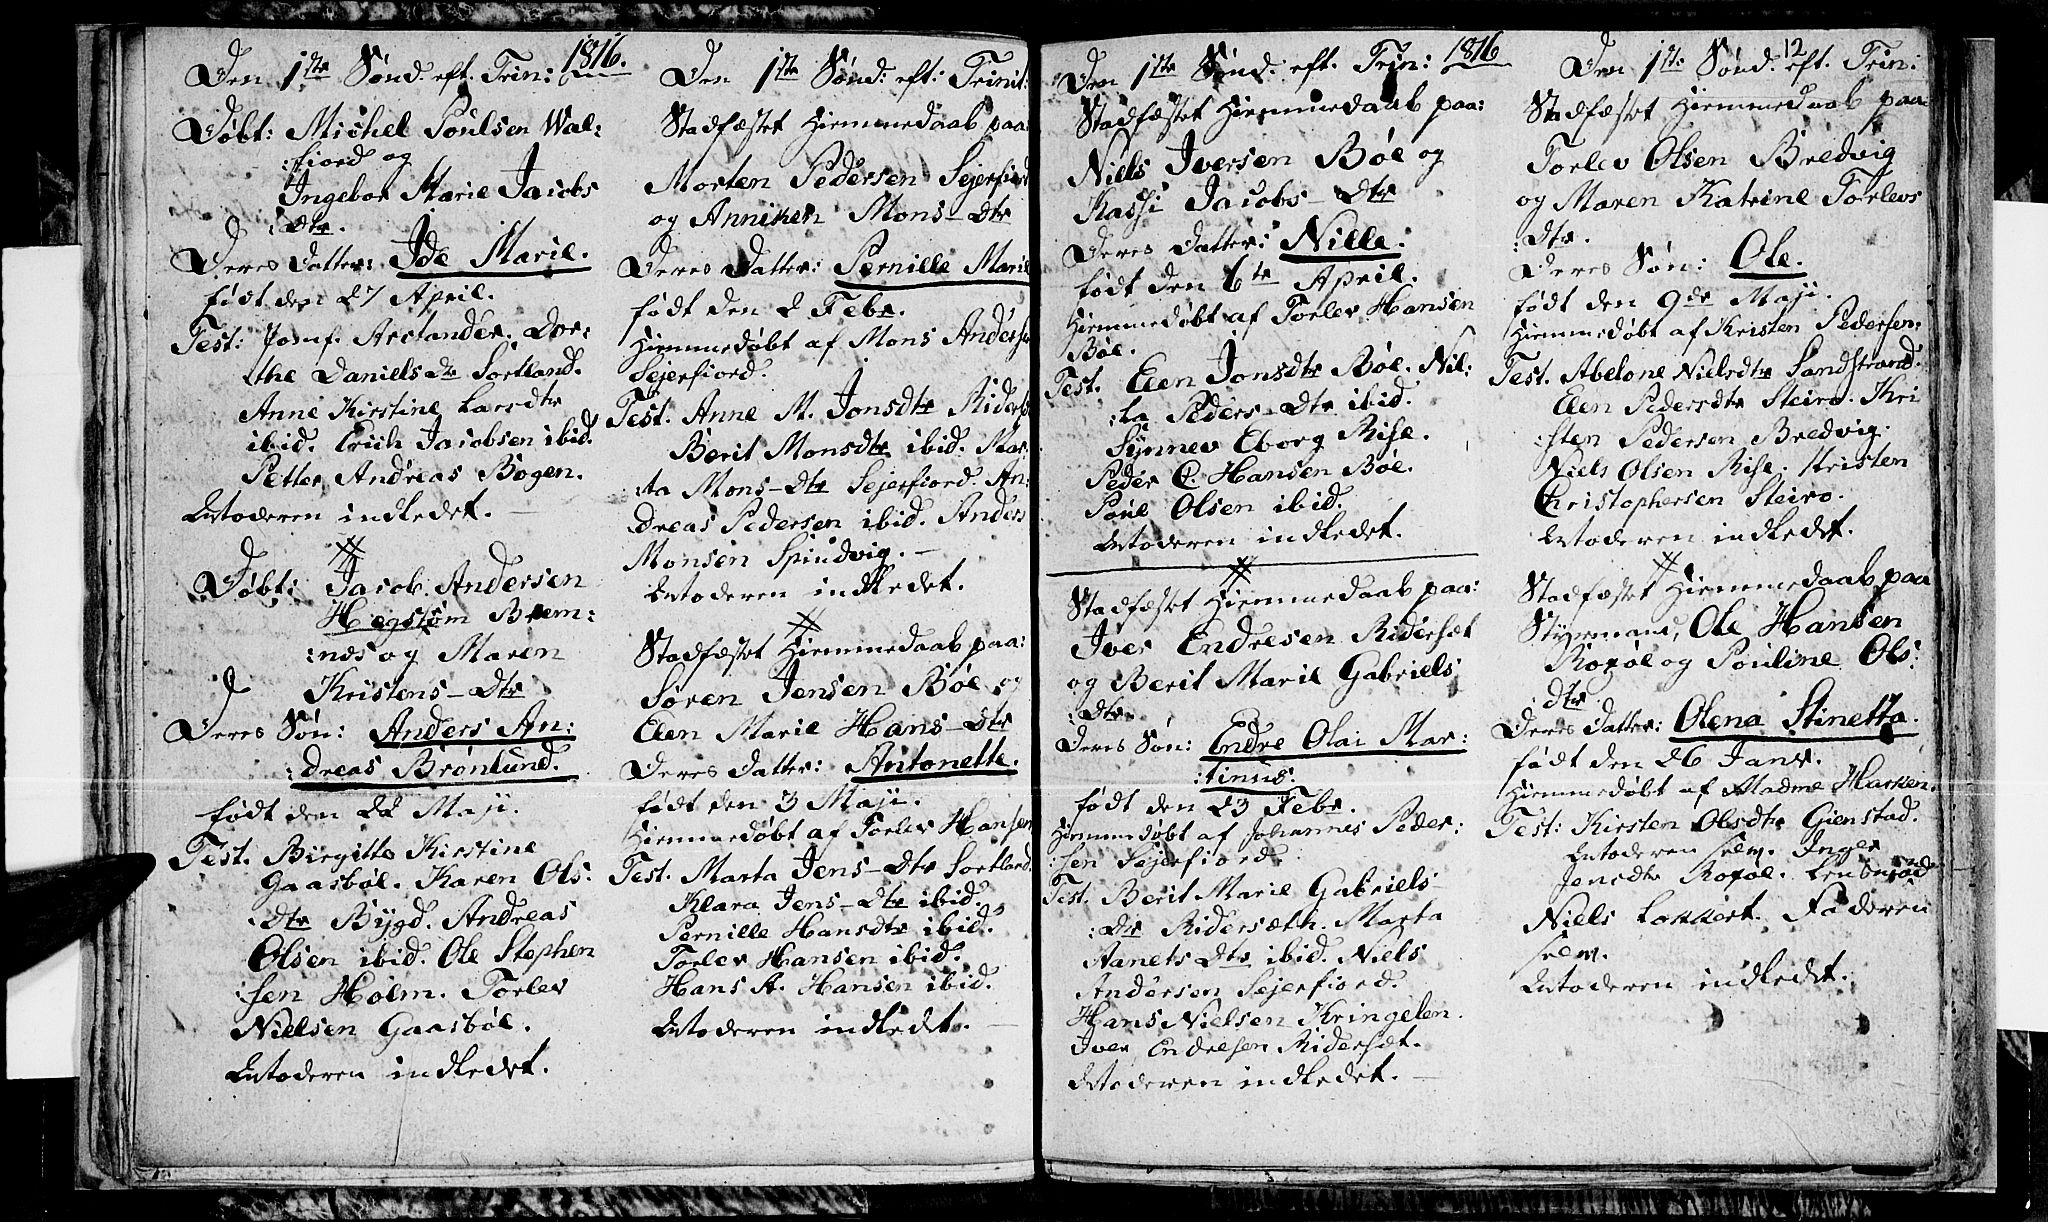 Den 1ste Sønd. eft. Trin: 1816.
Døbt: Michel Poulsen Wal:
:fiord og
Ingebor Marie Jacobs
:Dtr.
Deres Datter: Ide Marie.
født den 27 April.
Test: Jomf. Arctander. Dor:
:the Daniels Dtr Sortland.
Anne Kirstine Larsdtr
ibid. Erich Jacobsen ibid.
Petter Andreas Bogen.
Introderen indledet.
Døbt: Jacob Andersen
Hegstøm Brem:
:næs og Maren
Kristens-Dtr
Deres Søn: Anders An:
:dreas Brønlund.
født den 22 Maji.
Test. Birgitte Kirstine
Gaasbøl. Karen Ols:
:Dtr Bygd. Andreas
Olsen ibid. Ole Stephen
:sen Holm. Torlev
Nielsen Gaasbøl.
Introderen indledet.
Den 1ste Sønd: eft: Trinit:
Stadfæstet Hiemmedaab paa:
Morten Pedersen Sejerfiord
og Anniken Mons-Dtr
Deres Datter: Pernille Marie
født den 2 Febr.
Hiemmedøbt af Mons Anders
Sejerfiord.
Test. Anne M. Jonsdtr Riders
Berit Monsdtr ibid. Mar:
:ta Mons-Dtr Sejerfiord. An:
dreas Pedersen ibid. Anders
Monsen Spindvig.
Introderen indledet.
Stadfæstet Hiemmedaab paa:
Søren Jensen Bøe og
Elen Marie Hans-Dtr
Deres Datter: Antonette.
født den 3 Maji.
Hiemmedøbt af Torlev Hansen
Test. Marta Jens-Dtr Sortland
Klara Jens-Dtr ibid.
Pernille Hansdtr ibid.
Torlev Hansen ibid.
Hans A. Hansen ibid.
Introderen indledet.
Den 1ste Sønd. eft. Trin: 1816
Stadfæstet Hiemmedaab paa:
Niels Iversen Bøe og
Kassi Jacobs-Dtr
Deres Datter: Nille.
født den 6te April.
Hiemmedøbt af Torlev Hansen
Bøe.
Test. Elen Jonsdtr Bøe. Nil:
:la Peders-Dtr ibid.
Synnev Eborg Rise.
Peder C. Hansen Bøe.
Poul Olsen ibid.
Introderen indledet.
Stadfæstet Hiemmedaab paa:
Iver Endresen Ridersæt
og Berit Marie Gabriels
:Dtr
Deres Søn: Endre Olai Mar:
:tinus.
født den 23 Febr.
Hiemmedøbt af Johannes Peder:
:sen Sejerfiord.
Test. Berit Marie Gabriels
:Dtr Ridersæth. Marta
Aanets Dtr ibid. Niels
Andersen Sejerfiord.
Hans Nielsen Kringelen.
Iver Endresen Ridersæt.
Introderen indledet.
12
Den 1st. Sønd. eft. Trin:
Stadfæstet Hiemmedaab paa
Torlev Olsen Bredvig
og Maren Katrine Torlevs
:Dtr.
Deres Søn: Ole.
født den 9de Maji.
Hiemmedøbt af Kristen Pedersen.
Test. Abelone Nielsdtr Sandstrand.
Elen Pedersdtr Steiro. Kri
:sten Pedersen Bredvig.
Niels Olsen Rise. Kristen
Christophersen Steiro.
Introderen indledet.
Stadfæstet Hiemmedaab paa
Styrmand, Ole Hansen
Roxøe og Pouline Ols:
:Dtr
Deres Datter: Olena Stinetta.
født den 26 Janr.
Hiemmedøbt af Madme Harken.
Test: Kirsten Olsdtr Gienstad.
Introderen selv. Inger
Jensdtr Roxøe.
Niels Lokkert. Faderen
selv.
Introderen indledet.